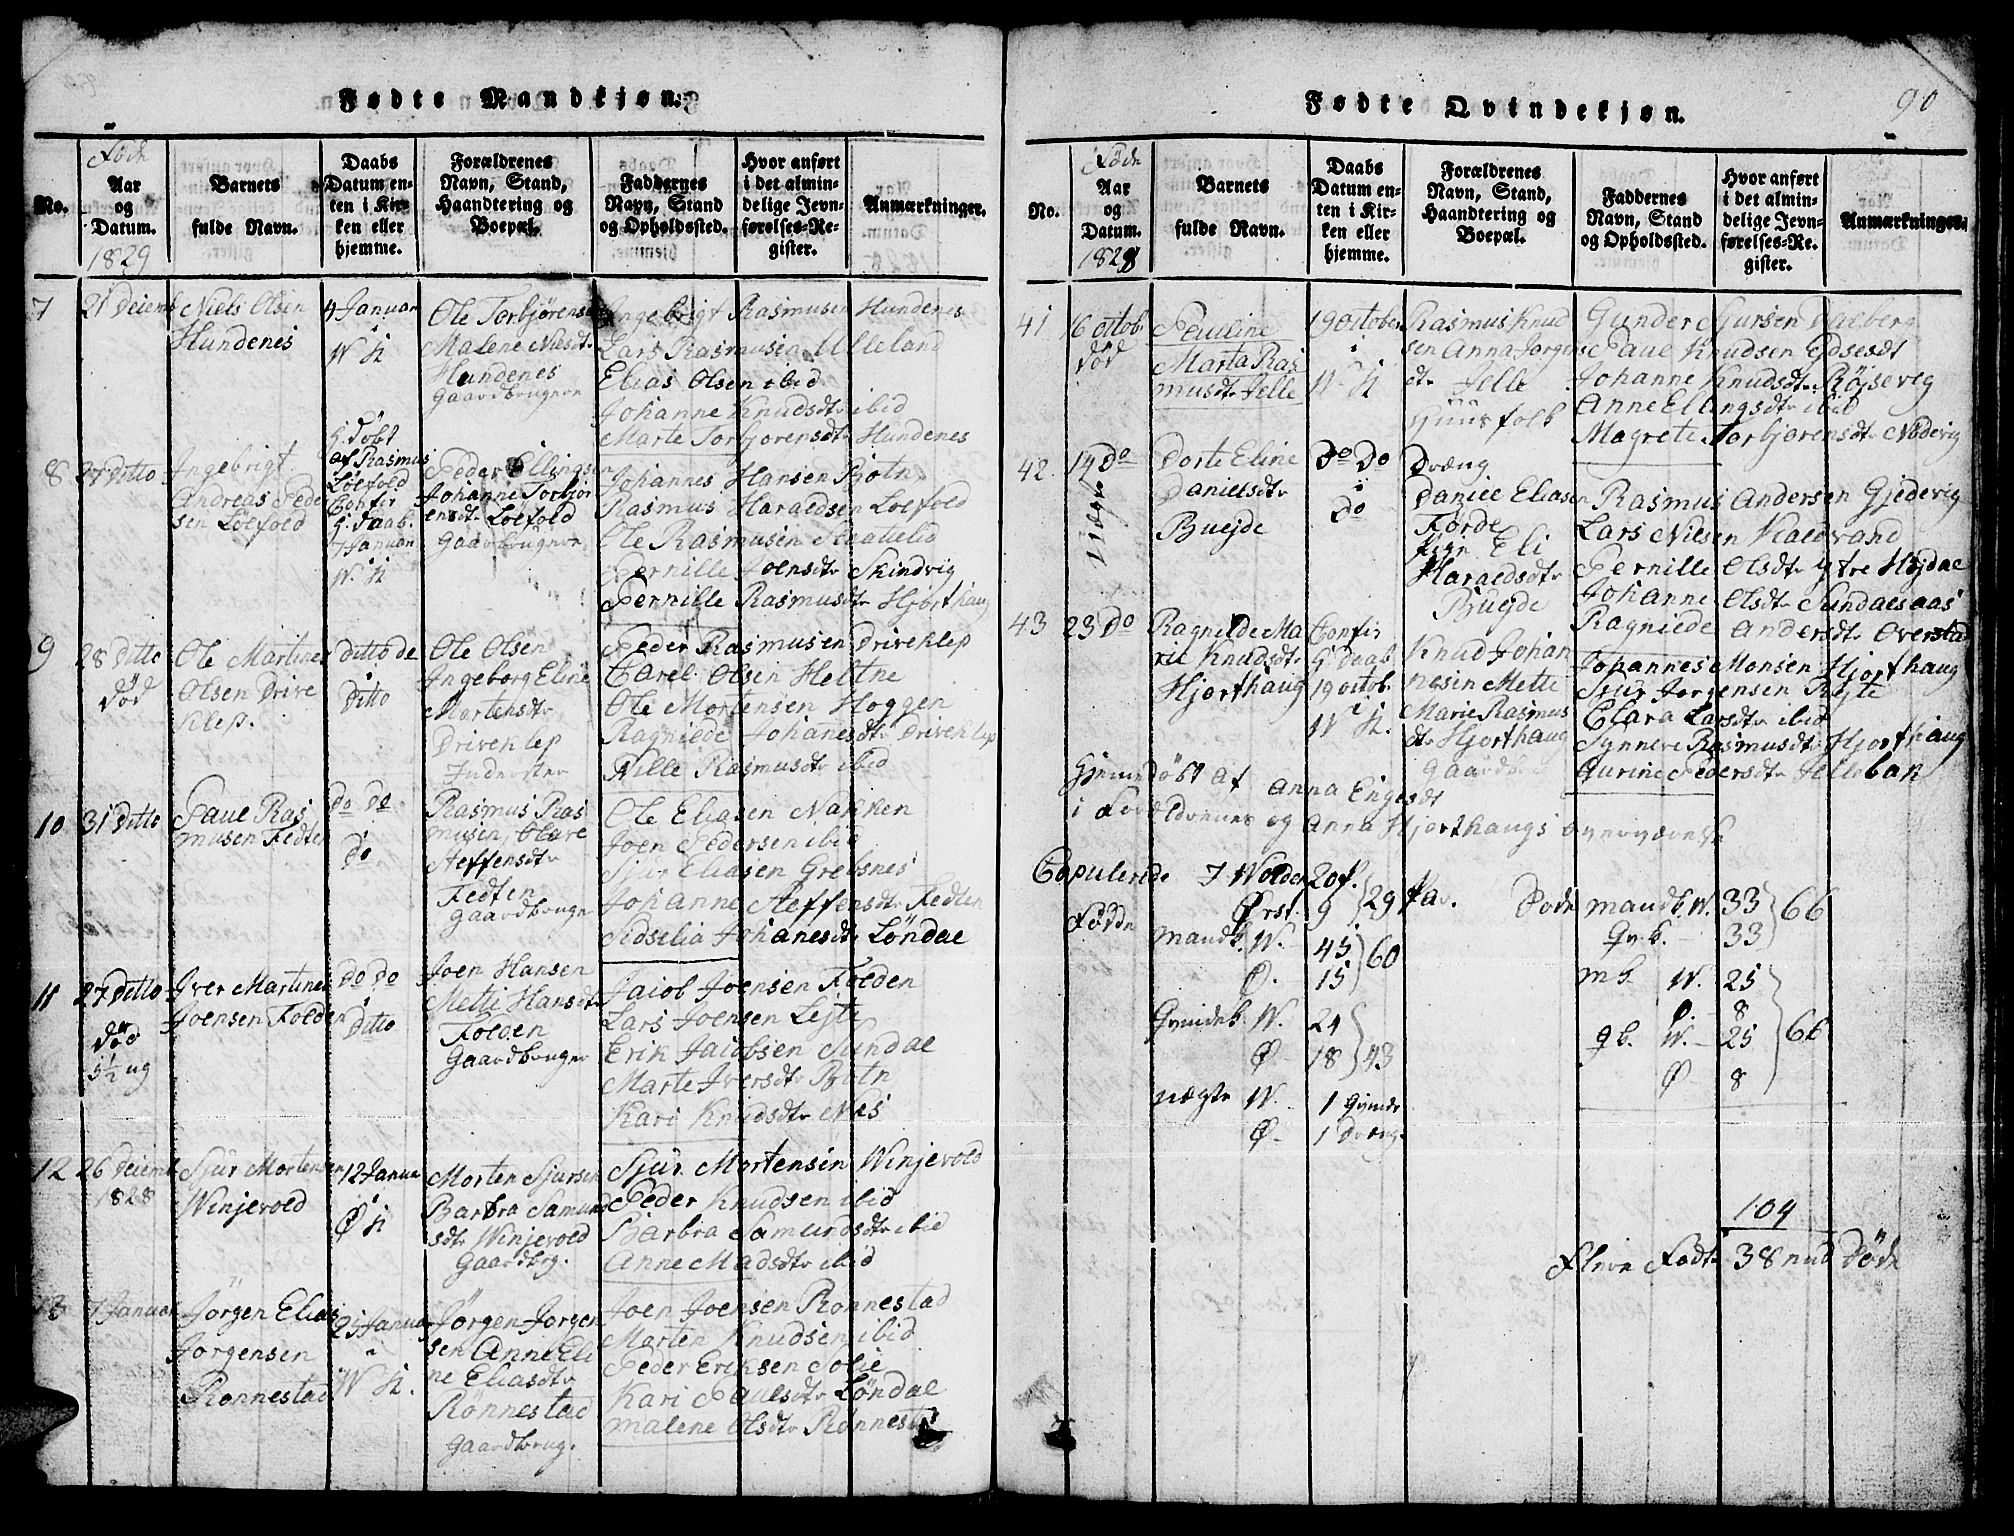 Fødte Mandkjøn.
No.
Føde
Aar
og
Datum.
1829
Barnets
fulde Navn.
Daabs
Datum en-
ten i Kir-
ken eller
hjemme.
Forældrenes
Navn, Stand,
Haandtering og
Boepæl.
Faddernes
Navn, Stand
og Opholdssted.
Hvor anført
i det almin-
delige Jevn-
førelses-Re-
gister.
Anmærkninger.
7
21 Decemb
Niels Olsen
Hundenes
4 Januar
i
W K
Ole Torbjørens
Malene Nilsdtr
Hundenes
Gaardbrugere
Ingebrigt Rasmusen Hundenes
Lars Rasmusen Ulleland
Elias Olsen ibid
Johanne Knudsdtr ibid
Marte Torbjorensdtr Hundenes
8
27 Ditto
Ingebrigt
Andreas Peder
sen Loefold
H. Døbt
af Rasmus
Loefold
Confir
H. Daab.
7 Januari
W. K
Peder Ellingsen
Johanne Torbjør
ensdtr Loefold
Gaardbrugere
Johannes Hansen Botn
Rasmus Haraldsen Loefold
Ole Rasmusen
Pernille Joensdtr Skindvig
Pernille Rasmusdtr Hjorthaug
9
28 Ditto
Død
Ole Martines
Olsen Drive
klep.
Ditto de
i
Ditto
Ole Olsen
Ingeborg Eline
Mortensdtr
Driveklep
Inderster
Peder Rasmusen Driveklep
Carel Olsen Heltne
Ole Mortensen Hoggen
Ragnilde Johanesdtr Driveklep
Nille Rasmusdtr ibid
10
31 Ditto
Paul Ras
musen Fedten
Do Do
i
Do
Rasmus Ras
musen, Olave
Steffensdtr
Fedten
Gaardbruger
Ole Eliasen Nakken
Joen Pedersen ibid
Sjur Eliasen Grebsnes
Johanne Steffensdtr Fedten
Sidselia Johanesdtr Løndal
11
27 Ditto
Død
5½ ug
Iver Martines
Joensen Folden
Do Do
i
Ditto
Joen Hansen
Mette Hansdtr
Folden
Gaardbruger
Jacob Joensen Folden
Lars Joensen Lejte
Erik Jacobsen Sundal
Marte Iversdtr Botn
Kari Knudsdtr Nes
12
26 Decemb
1828
Sjur Mortensen
Winjevold
12 Janua
i
Ø K
Morten Sjursen
Barbra Samund
sdtr Winjevold
Gaardbrg.
Sjur Mortensen Winjevold
Peder Knudsen ibid
Barbra Samundsdtr ibid
Anne Madsdtr ibid
13
7 Januar
Jørgen Elias
Jørgensen
Rønnestad
25 Januar
i
W K.
Jørgen Jorgen
sen Anne Eli
ne Eliasdtr
Rønnestad
Gaardbrug.
Joen Joensen Ronnestad
Marten Knudsen ibid
Peder Eriksen Solie
Kari Paulsdtr Løndal
Malene Olsdtr Rønnestad
Fødte Qvindekjøn.
90
No.
Føde
Aar
og
Datum.
1828
Barnets
fulde Navn.
Daabs
Datum en-
ten i Kir-
ken eller
hjemme.
Forældrenes
Navn, Stand,
Haandtering og
Boepæl.
Faddernes
Navn, Stand
og Opholdssted.
Hvor anført
i det almin-
delige Jevn-
førelses-Re-
gister.
Anmærkninger.
41
6 octob.
Død
Pauline
Marta Ras
musdtr Jelle
19 October
i
W K
Rasmus Knud
sen Anna Jorgens
dtr Jelle
Huusfolk
Gunder Sjursen Daleberg
Paul Knudsen Edsesdt
Johanne Knudsdtr Røjsevig
Anne Ellingsdtr ibid
Magrete Torbjørensdtr Nødvig
42
14 Do
Uægte
Dorte Eline
Danielsdtr
Buejde
Do Do
i
Do
Dræng
Daniel Eliasen
Førde
Pige Eli
Haraldsdtr
Buejde
Rasmus Andersen Gjedevig
Lars Nilsen Kaldvand
Pernille Olsdtr ytre Højdal
Johanne Olsdtr Sundalsaas
Ragnilde Andersdtr Overstad
43
23 Do
Ragnilde Ma
rie Knudsdtr
Hjorthaug
Confir
H. Daab
19 octob.
i
W K.
Knud Johan
nesen Mette
Marie Rasmus
dtr Hjorthaug
Gaardbr
Johannes Monsen Hjorthaug
Sjur Jorgensen Røjte
Clara Larsdtr ibid
Synneve Rasmusdtr Hjorthaug
Gurine Pedersdtr Jellebak
Hjemedøbt af Anna Engesdt
i Forældrenes og Anna Hjorthaugs overværelse
Copulerede 7 Wolden 20 p.
Ørst. 9
29 Par.
Fødde
Mandk. W. 45
Ø. 15
60
Qvindek W. 24
Ø 18
43
uægte W. 1 Qvinde
Ø. 1 Dræng.
Døde Mandk. W. 33
Qv. k. 33
66
m k W. 25
Ø. 8
qk. W. 25
Ø 8
66
104
Flere Fødte 38 end Døde